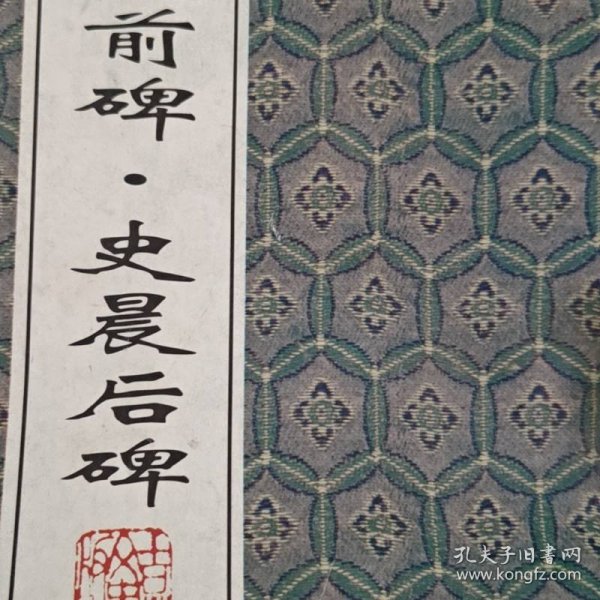 前碑·史晨后碑
孔夫子旧書网
www.kongfz.com